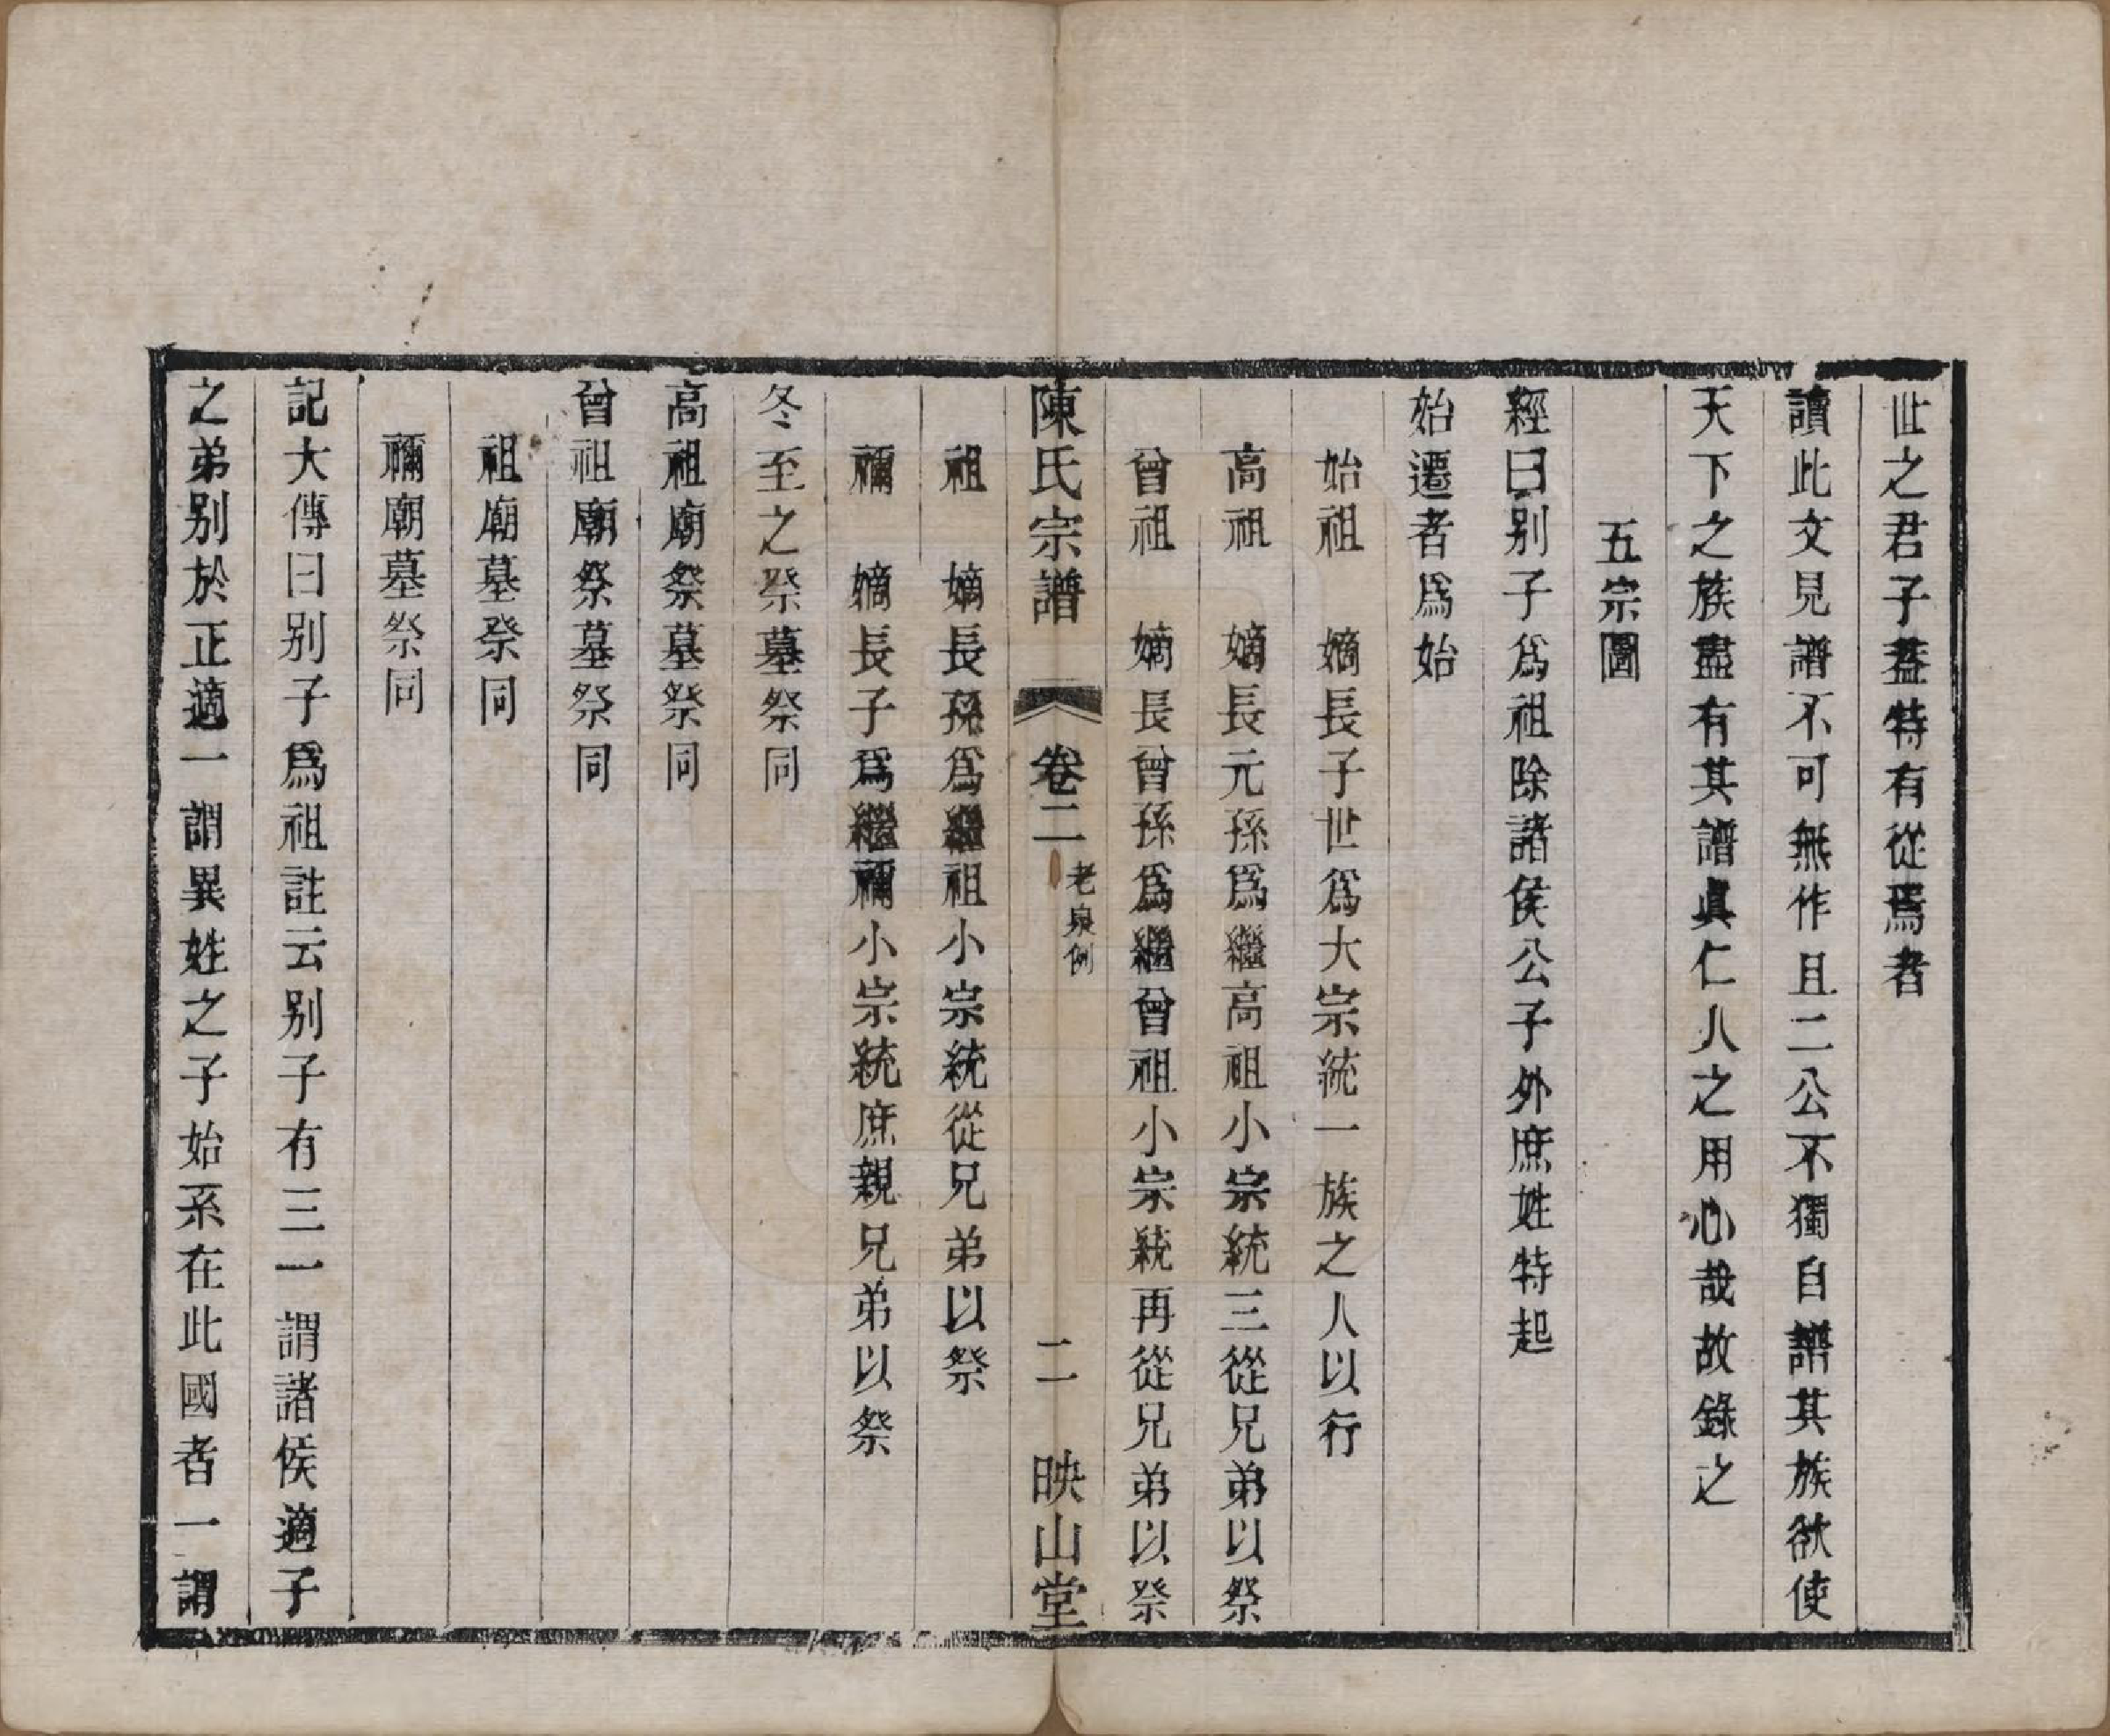 世之君子葢特有從焉者
讀此文見譜不可無作且二公不獨自譜其族欲使
天下之族盡有其譜眞仁人之用心哉故錄之
五宗圖
經曰别子爲祖除諸侯公子外庶姓特起
始遷者爲始
始祖　嫡長子世爲大宗統一族之人以行
高祖　嫡長元孫爲繼高祖小宗統三從兄弟以祭
曾祖　嫡長曾孫爲繼曾祖小宗統再從兄弟以祭
陳氏宗譜　卷二　老泉例　二　映山堂
祖　嫡長孫爲繼祖小宗統從兄弟以祭
禰　嫡長子爲繼禰小宗統庶親兄弟以祭
冬至之祭墓祭同
高祖廟祭墓祭同
曾祖廟祭墓祭同
祖廟墓祭同
禰廟墓祭同
記大傳曰别子爲祖註云别子有三一謂諸侯適子
之弟别於正適一謂異姓之子始系在此國者一謂